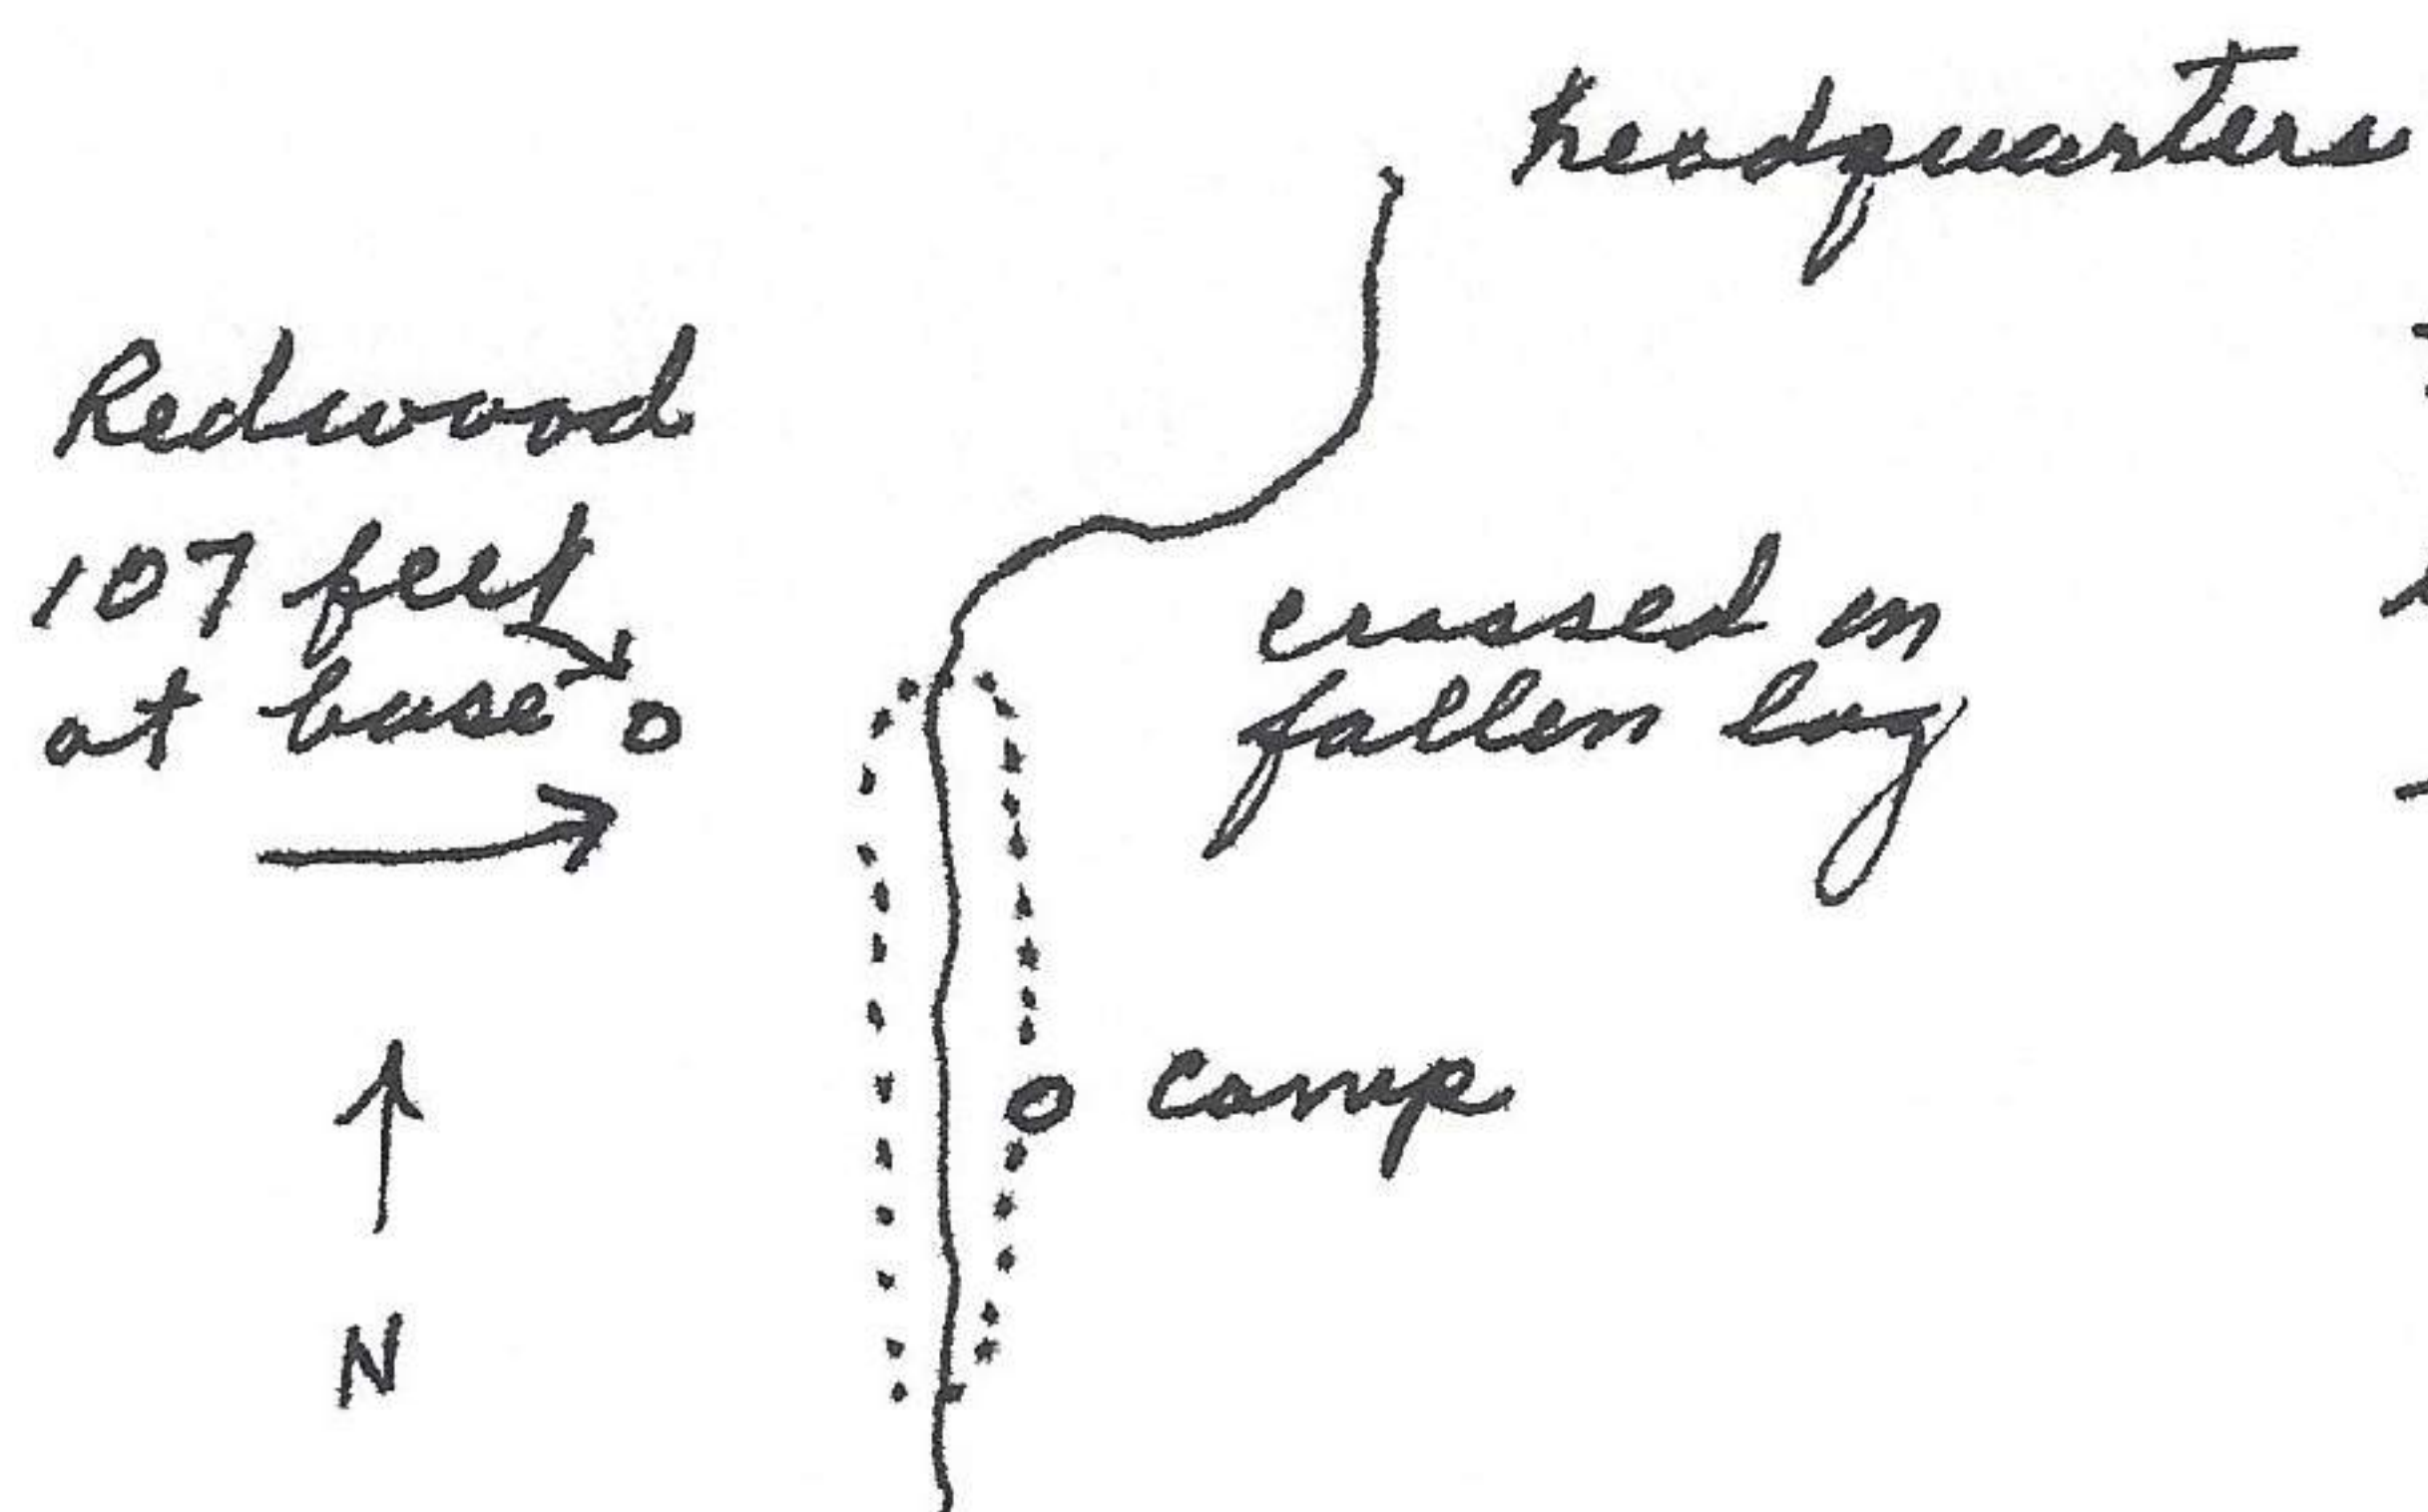 headquarters
Redwood
107 feet
at base
crossed on
fallen log
camp
N